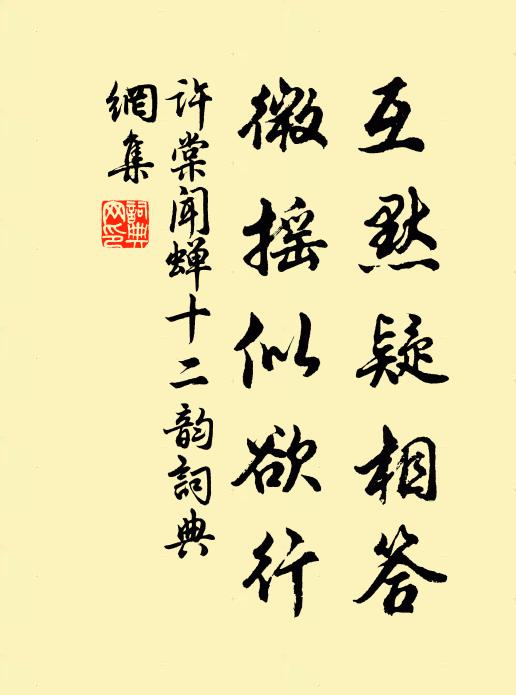 互默疑相答
微摇似欲行
许棠闻蝉十二韵詞典
網集
詞典
网印